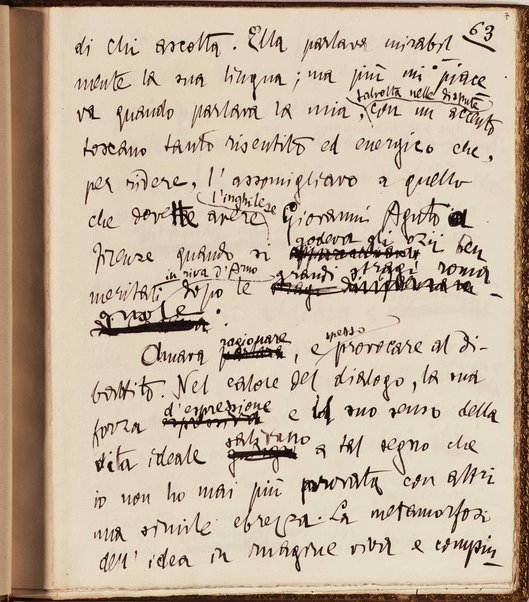 7
63
di chi ascolta. Ella parlava mirabil
mente la sua lingua; ma più mi piace
talvolta nelle dispute
va quando parlava la mia, con un accento
toscano tanto risentito ed energico che,
per ridere, l'assomigliavo a quello
l'inghilese
che dovette avere Giovanni Aguto a
godeva gli ozii ben
Firenze quando si
in riva d'Arno grandi stragi roma-
meritati dopo le
gnole.
ragionare spesso
Amava , e provocare al di-
battito. Nel calore del dialogo, la sua
d'espressione
forza e il suo senso della
salivano
vita ideale a tal segno che
io non ho mai più provata con altri
una simile ebrezza. La metamorfosi
dell'idea in imagine viva e compiu-